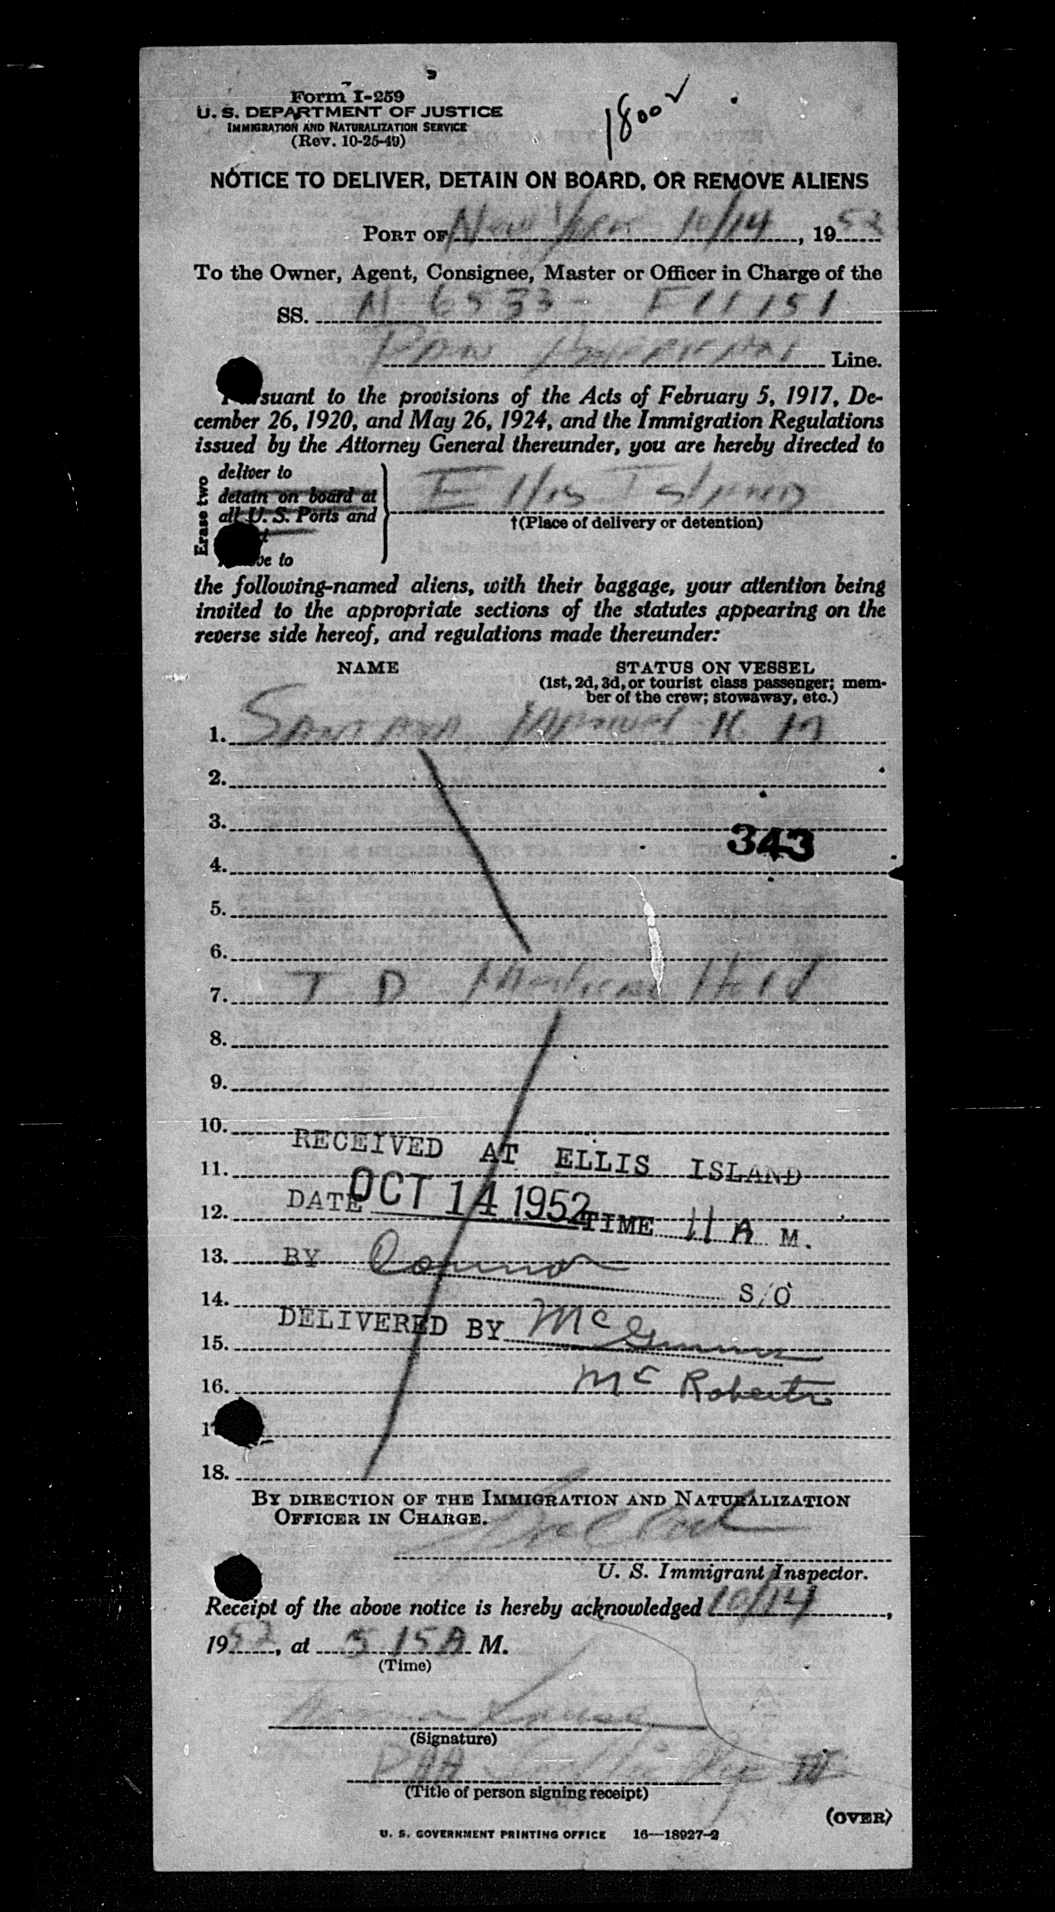 Form I-259
U. S. DEPARTMENT OF JUSTICE
IMMIGRATION AND NATURALIZATION SERVICE
(Rev. 10-25-49)
1800 ✓
NOTICE TO DELIVER, DETAIN ON BOARD, OR REMOVE ALIENS
PORT OF New York 10/14, 1952
To the Owner, Agent, Consignee, Master or Officer in Charge of the
SS. N 6533 - F11 151
Pan American Line.
suant to the provisions of the Acts of February 5, 1917, De-
cember 26, 1920, and May 26, 1924, and the Immigration Regulations
issued by the Attorney General thereunder, you are hereby directed to
Erase two
deliver to
detain on board at
all U. S. Ports and
to
Ellis Island
†(Place of delivery or detention)
the following-named aliens, with their baggage, your attention being
invited to the appropriate sections of the statutes appearing on the
reverse side hereof, and regulations made thereunder:
NAME STATUS ON VESSEL
(1st, 2d, 3d, or tourist class passenger; mem-
ber of the crew; stowaway, etc.)
1. Santana
2.
3.
343
4.
5.
6.
7. T D Medical Hold
8.
9.
10.
RECEIVED AT ELLIS ISLAND
11.
DATE OCT 14 1952 TIME 11 A M.
12.
13. BY Connor
S/O
14.
DELIVERED BY McGinnis
15.
McRoberts
16.
18.
BY DIRECTION OF THE IMMIGRATION AND NATURALIZATION
OFFICER IN CHARGE.
U. S. Immigrant Inspector.
Receipt of the above notice is hereby acknowledged 10/14,
1952, at 5 15A M.
(Time)
(Signature)
PAA
(Title of person signing receipt)
(OVER)
U. S. GOVERNMENT PRINTING OFFICE 16—18927-2